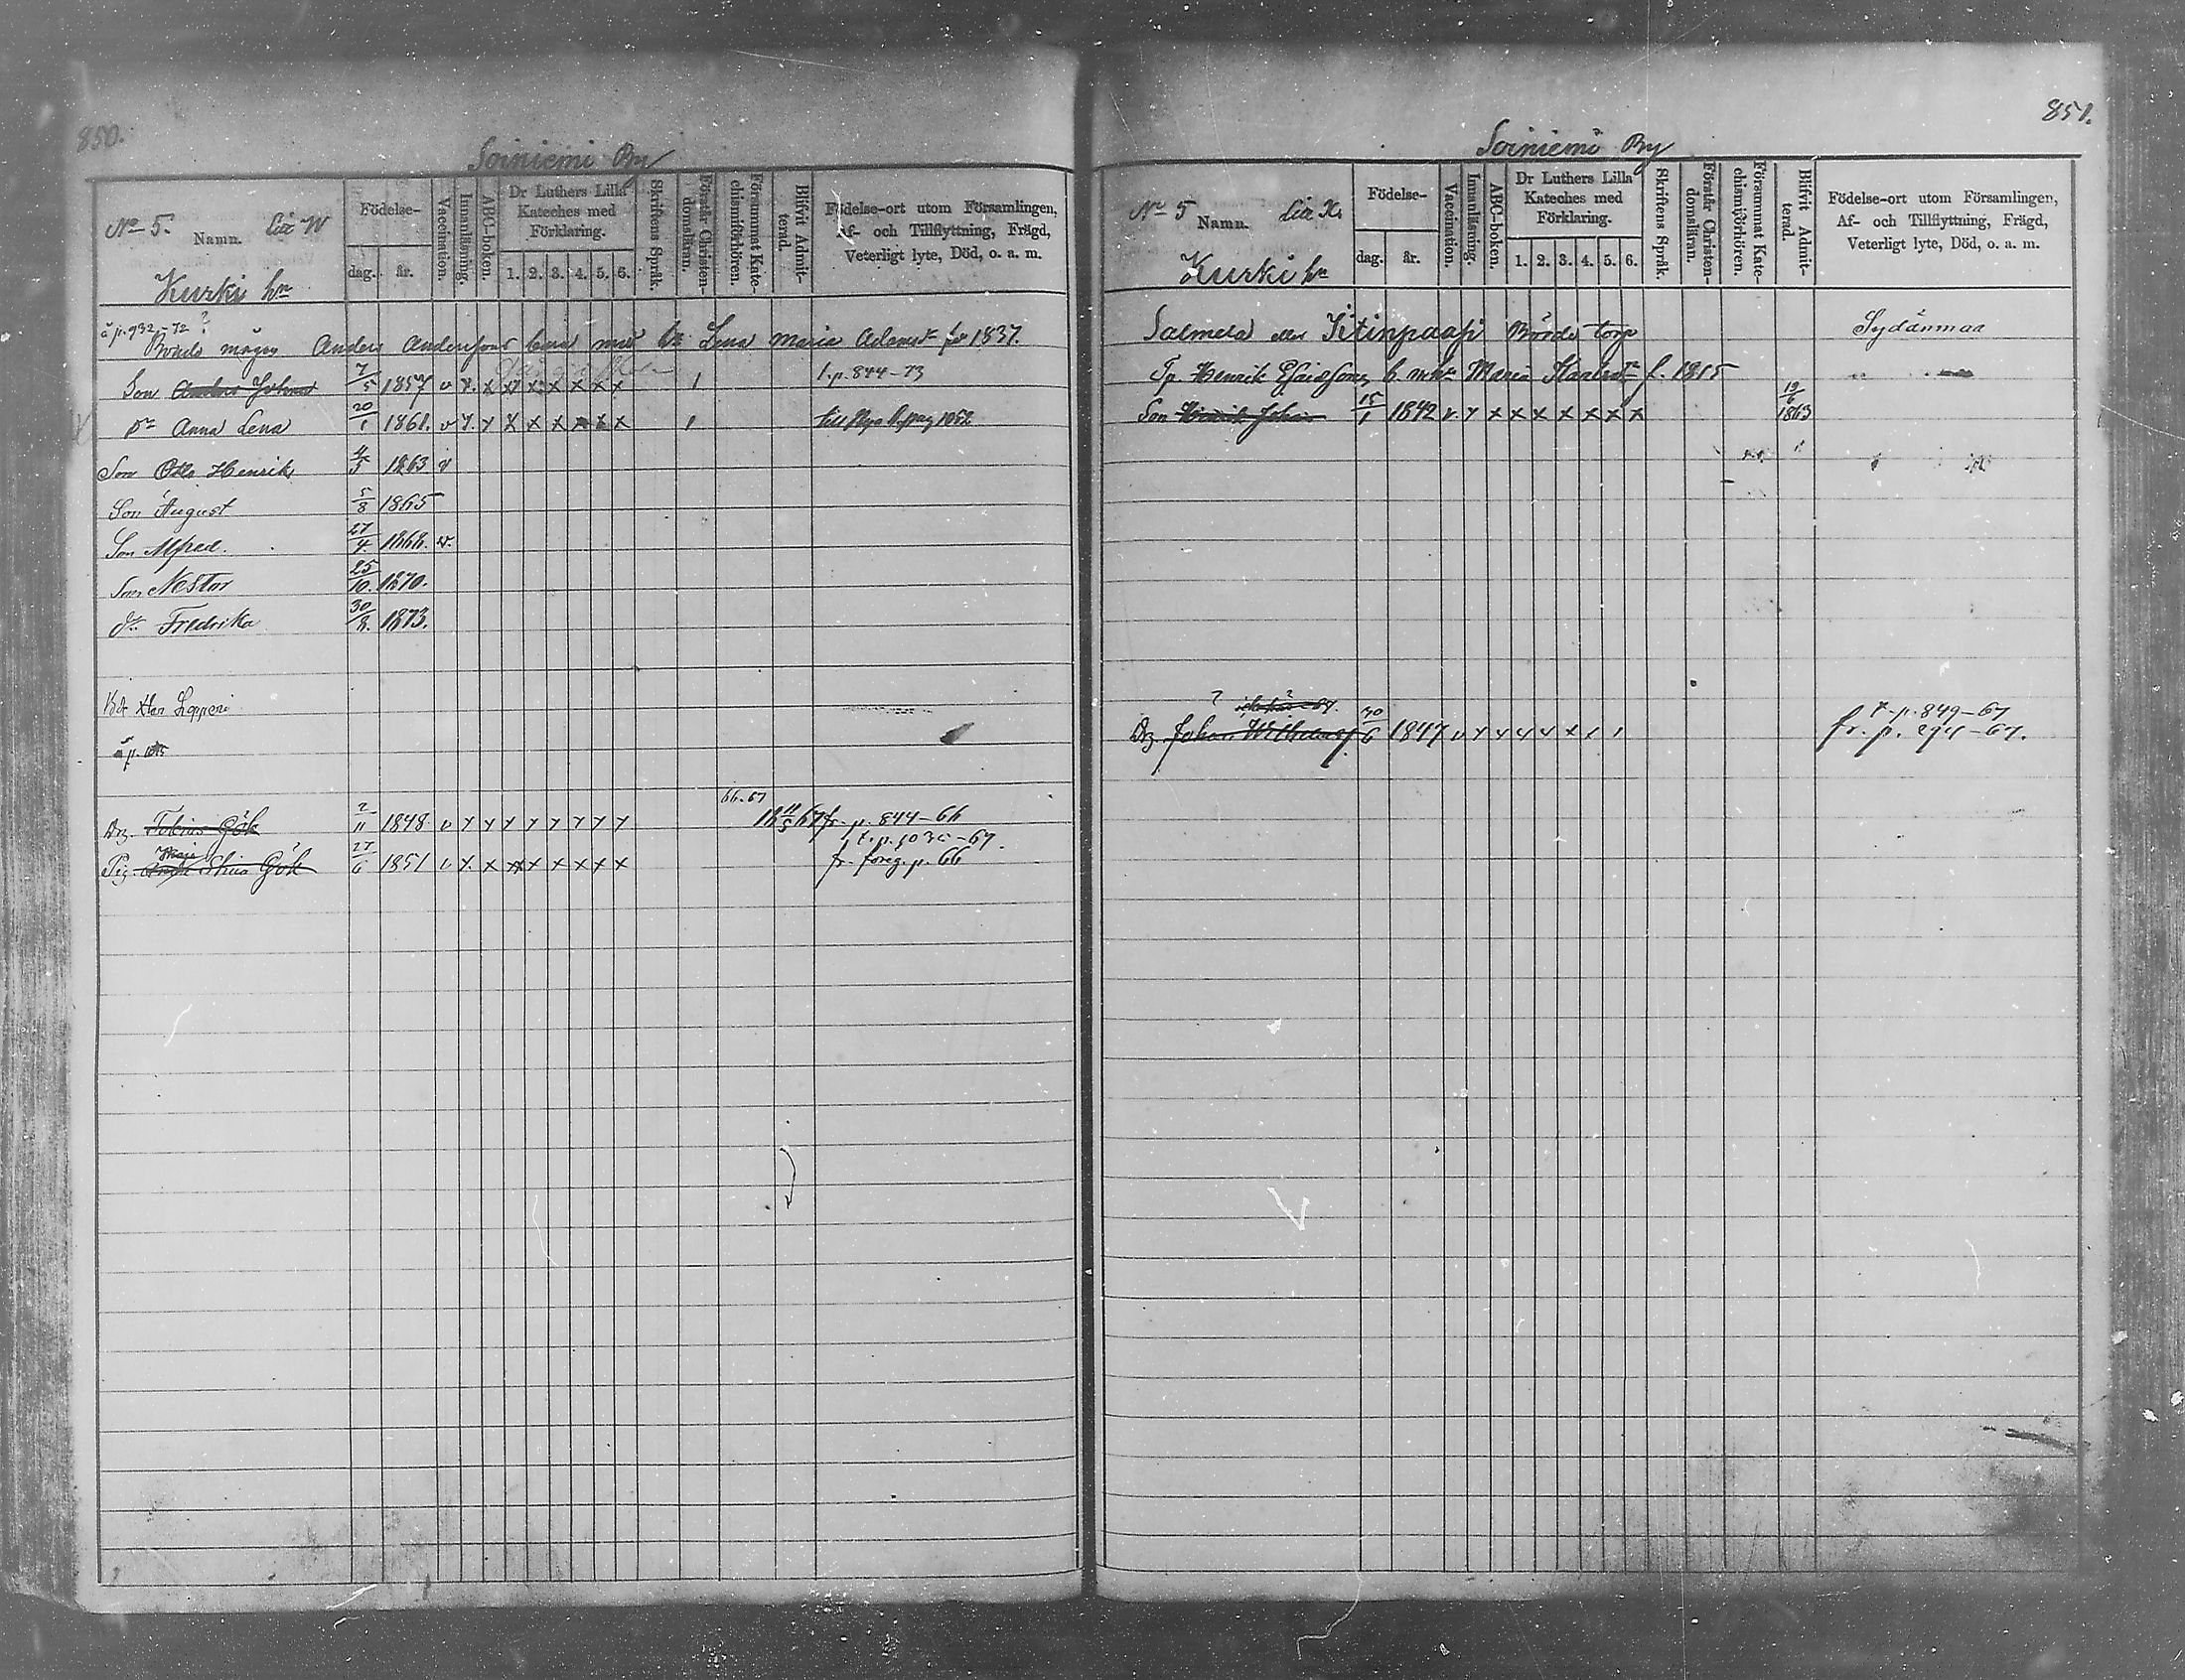 850.
Soiniemi By
No 5. Litt W
Namn.
Kurki hn
Födelse-
dag. år.
Vaccination.
Innanläsning.
ABC-boken.
Dr Luthers Lilla
Kateches med
Förklaring.
1. 2. 3. 4. 5. 6.
Skriftens Språk.
Förstår Christen-
domsläran.
Försummat Kate-
chismiförhören.
Blifvit Admit-
terad.
Födelse-ort utom Församlingen,
Af- och Tillflyttning, Frägd,
Veterligt lyte, Död, o. a. m.
å p. 932-72 ?
Bonds mågen Anders Andersons med Lena Maria Adamsdr 1837.
Son Anders Johan 7/5 1857 v x x x x x x x x 1 t. p. 844-73
Dr Anna Lena 20/1 1861. v x x x x x x x x 1 till Nya B. pag 1052
Son Otto Henrik 4/5 1863 v
Son August 5/8 1865
Son Alfred. 27/4 1868. v.
Son Nestor 25/10. 1870.
Dr Fredrika 30/8. 1873.
66.67
Drg. Tobias Gök 2/11 1848 v x x x x x x x x 18 67 fr. p. 844-66
t. p. 1035-67.
Maja
Pig. Stina Gök 27/6 1851 v x x x x x x x x fr. föreg. p. 66
851.
Soiniemi By
No 5 Litt X.
Namn.
Kurki hn
Födelse-
dag. år.
Vaccination.
Innanläsning.
ABC-boken.
Dr Luthers Lilla
Kateches med
Förklaring.
1. 2. 3. 4. 5. 6.
Skriftens Språk.
Förstår Christen-
domsläran.
Försummat Kate-
chismiförhören.
Blifvit Admit-
terad.
Födelse-ort utom Församlingen,
Af- och Tillflyttning, Frägd,
Veterligt lyte, Död, o. a. m.
Salmela eller Bonde torp Sydänmaa
Tp. Henrik Esaiasson Maria f. 1815
Son Henrik Johan 15/1 1842 v. x x x x x x x x 19/6 1863
? ?
t. p. 849-67
Drg Johan Wilhelmsf. 30/6 1847 v x x x x x fr. p. 294-67.